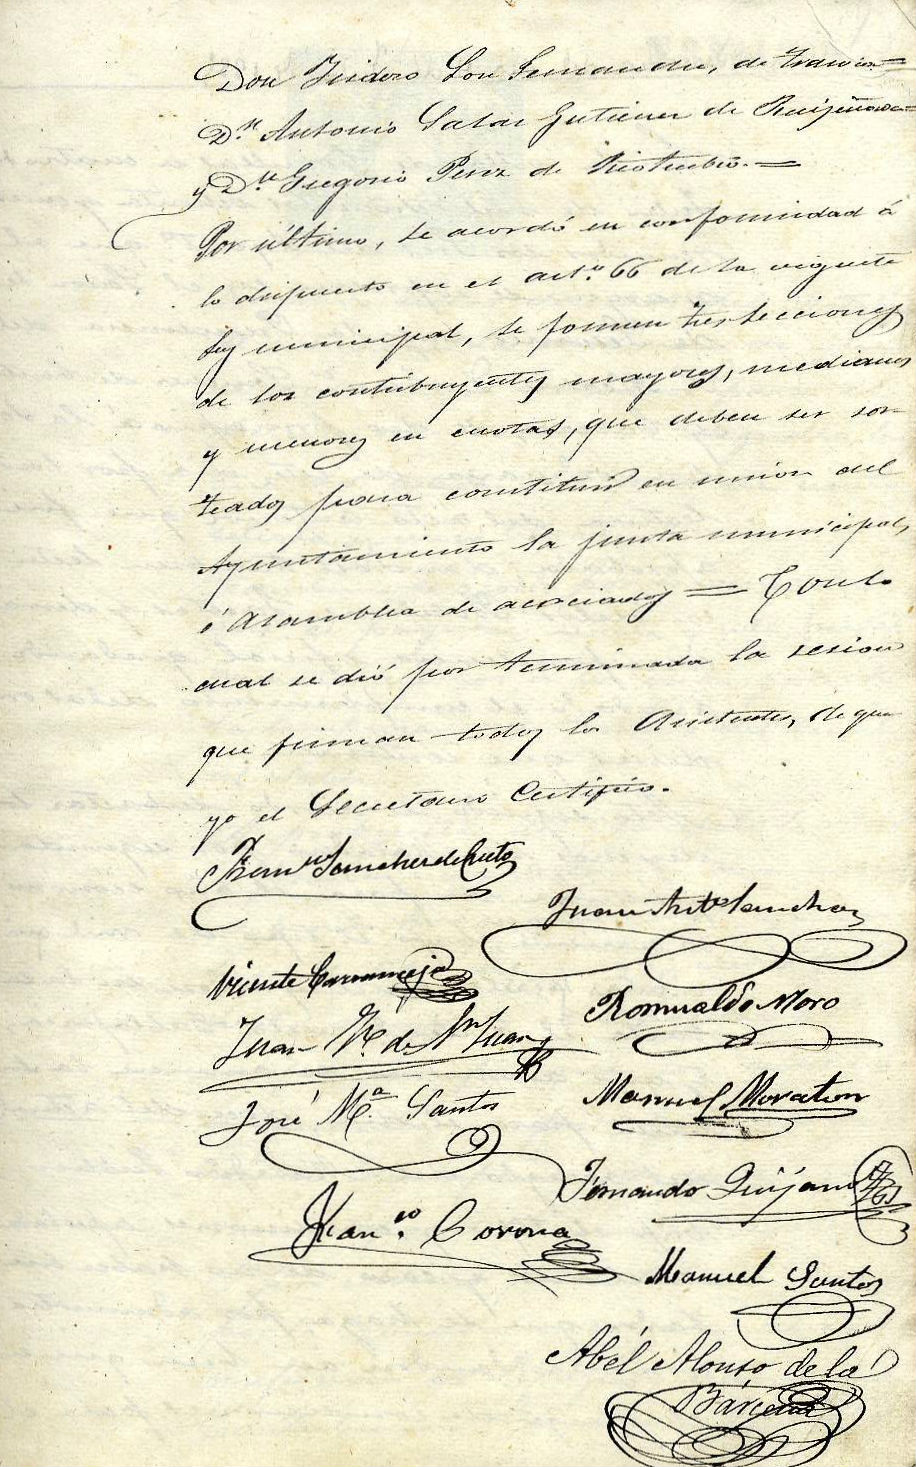 Don Isidoro Fernandez, de
D.n Antonio Salas Gutierrez de Ruiseñada
y D.n Gregorio Perez de Rioturbio.=
Por último, se acordó en conformidad á
lo dispuesto en el art.o 66 de la vigente
Ley municipal, se formen tres secciones
de los contribuyentes mayores, medianos
y menores en cuotas, que deben ser sor-
teados para constituir en union del
Ayuntamiento la junta municipal,
ó Asamblea de asociados = Con lo
cual se dió por terminada la sesion
que firman todos los Asistentes, de que
yo el Secretario Certifico.
Sanchez de Cueto
Juan Ant.o Sanchez
Vicente
Romualdo Moro
Juan M.a de S.n Juan
José M.a Santos
Manuel Moraton
Fernando Quijano
Fran.co Corona
Manuel Santos
Abél Alonso de la
Bárcena